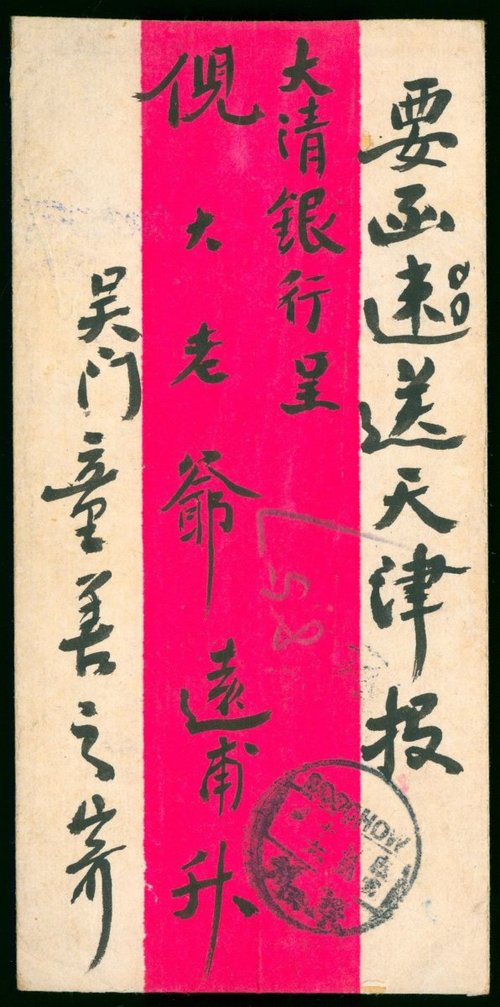 要函速送天津投
大清銀行呈
倪大老爺遠甫升
吴门童善之寄
SOOCHOW